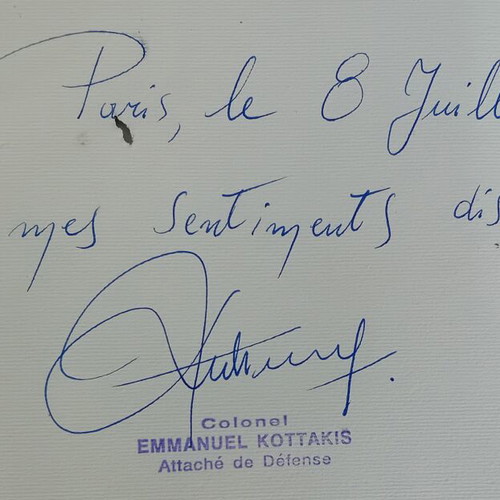 Paris, le 8 Juill
mes sentiments dis
Colonel
EMMANUEL KOTTAKIS
Attaché de Défense